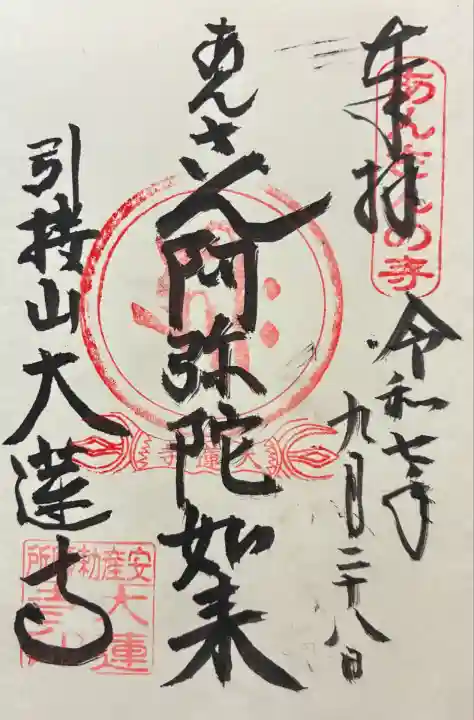 奉拝
あんざんの寺
令和七年
九月二十八日
あんざん阿弥陀如来
大蓮寺
引接山大蓮寺
安産勅願所
大蓮